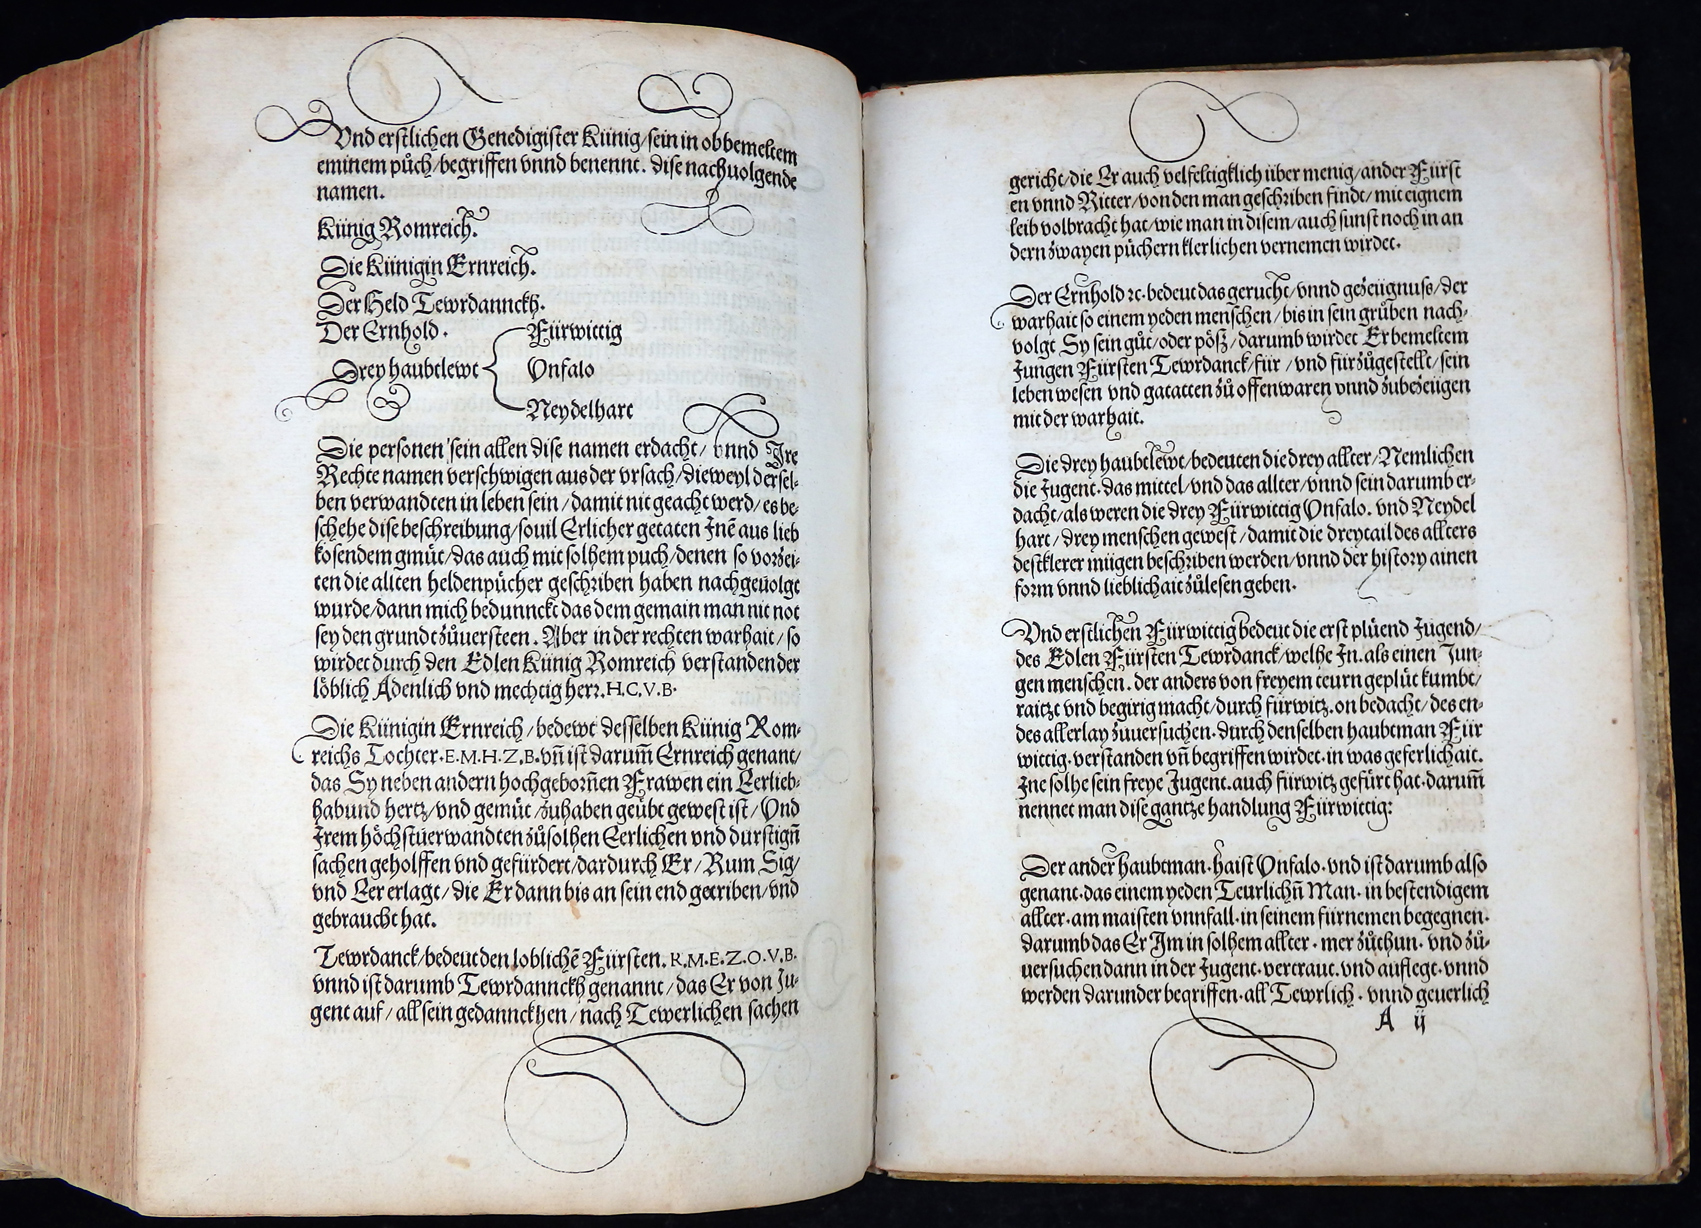 Vnd erstlichen Genedigister Künig/sein in obbemeltem
eminem půch/begriffen vnnd benennt. dise nachuolgende
namen.
Künig Romreich.
Die Künigin Ernreich.
Der Held Tewrdannckh.
Der Ernhold.
Drey haubtlewt
Fürwittig
Vnfalo
Neydelhart
Die personen sein allen dise namen erdacht/ vnnd Jre
Rechte namen verschwigen aus der vrsach/dieweyl dersel-
ben verwandten in leben sein/damit nit geacht werd/es be-
schehe dise beschreibung/souil Erlicher getaten Jnē aus lieb
kosendem gmüt/das auch mit solhem puch/denen so vorzei-
ten die allten heldenpücher geschriben haben nachgeuolgt
wurde/dann mich bedunnckt das dem gemain man nit not
sey den grundt zůuersteen. Aber in der rechten warhait/so
wirdet durch den Edlen Künig Romreich verstanden der
löblich Adenlich vnd mechtig herr.H.C.V.B.
Die Künigin Ernreich/bedewt desselben Künig Rom-
reichs Tochter.E.M.H.Z.B.vn̄ ist darum̄ Ernreich genant/
das Sy neben andern hochgeborn̄en Frawen ein Eerlieb-
habund hertz/vnd gemüt/zuhaben geübt gewest ist/Vnd
Jrem höchstuerwandten zůsolhen Eerlichen vnd durstign̄
sachen geholffen vnd gefürdert/dardurch Er/Rum Sig/
vnd Eer erlagt/die Er dann bis an sein end getriben/vnd
gebraucht hat.
Tewrdanck/bedeut den loblichē Fürsten.R.M.E.Z.O.V.B.
vnnd ist darumb Tewrdannckh genannt/das Er von Ju-
gent auf/all sein gedannckhen/nach Tewerlichen sachen
gericht/die Er auch velfeltigklich über menig/ander Fürst
en vnnd Ritter/von den man geschriben findt/mit eignem
leib volbracht hat/wie man in disem/auch sunst noch in an
dern zwayen püchern klerlichen vernemen wirdet.
Der Ernhold ꝛc.bedeut das gerucht/vnnd gezeügnuss/der
warhait so einem yeden menschen/bis in sein grüben nach-
volgt Sy sein gůt/oder pöß/darumb wirdet Er bemeltem
Jungen Fürsten Tewrdanck/für/vnd fürzůgestellt/sein
leben wesen vnd gatatten zů offenwaren vnnd zubezeügen
mit der warhait.
Die drey haubtlewt/bedeuten die drey allter/Nemlichen
die Jugent.das mittel/vnd das allter/vnnd sein darumb er-
dacht/als weren die drey Fürwittig Vnfalo.vnd Neydel
hart/drey menschen gewest/damit die dreytail des allters
destklerer mügen beschriben werden/vnnd der history ainen
form vnnd lieblichait zůlesen geben.
Vnd erstlichen Fürwittig bedeut die erst plüend Jugend/
des Edlen Fürsten Tewrdanck/welhe Jn.als einen Jun-
gen menschen.der anders von freyem teurn geplüt kumbt/
raitzt vnd begirig macht/durch fürwitz.on bedacht/des en-
des allerlay zuuersuchen.durch denselben haubtman Für
wittig.verstanden vn̄ begriffen wirdet.in was geferlichait.
Jne solhe sein freye Jugent.auch fürwitz gefürt hat.darum̄
nennet man dise gantze handlung Fürwittig:
Der ander haubtman.haist Vnfalo.vnd ist darumb also
genant.das einem yeden Teurlichn̄ Man.in bestendigem
allter.am maisten vnnfall.in seinem fürnemen begegnen.
darumb das Er Jm in solhem allter.mer zůthun.vnd zů-
uersuchen dann in der Jugent.vertraut.vnd auflegt.vnnd
werden darunder begriffen.all Tewrlich.vnnd geuerlich
A ij